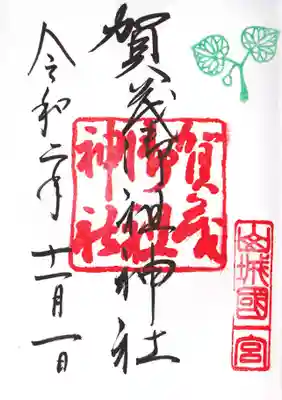 山城國一宮
賀茂御祖神社
賀茂
御祖
神社
令和二年 十一月一日